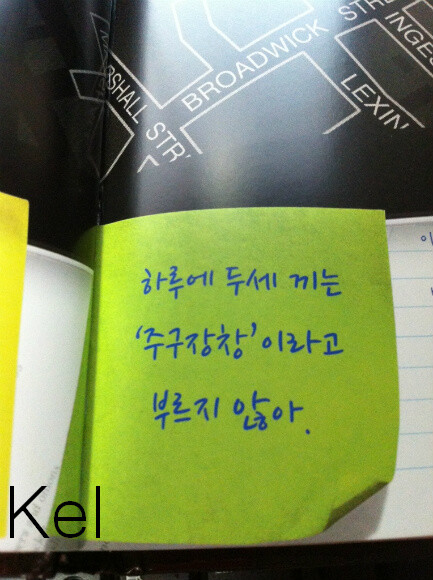 BROADWICK STRE
INGES
LEXIN
SHALL STR
하루에 두세 끼는
'주구장창'이라고
부르지 않아.
Kel